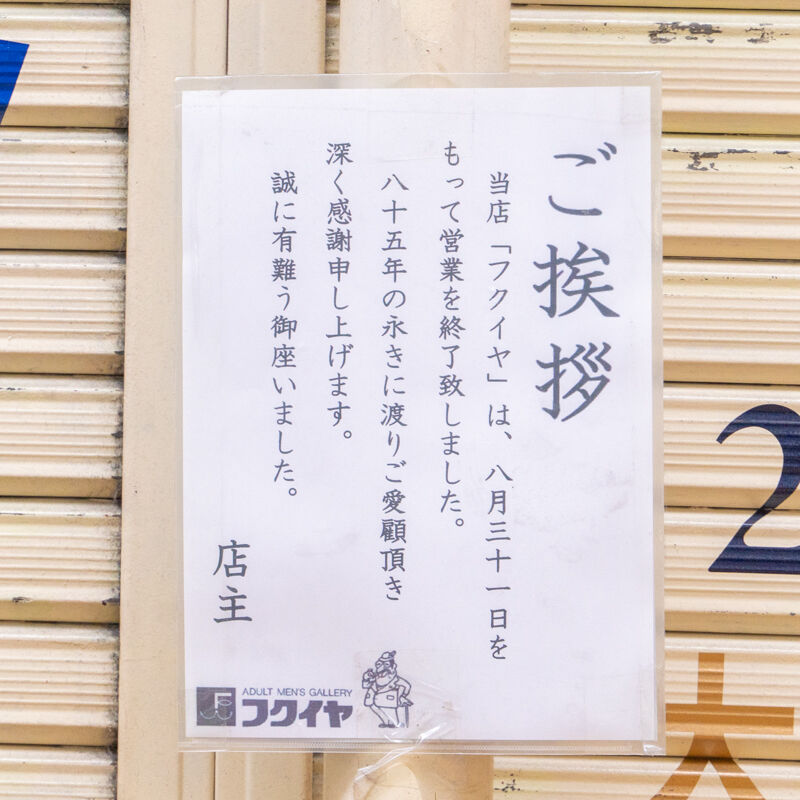 ご挨拶
当店「フクイヤ」は、八月三十一日を
もって営業を終了致しました。
八十五年の永きに渡りご愛顧頂き
深く感謝申し上げます。
誠に有難う御座いました。
店主
ADULT MEN'S GALLERY
フクイヤ
2
大